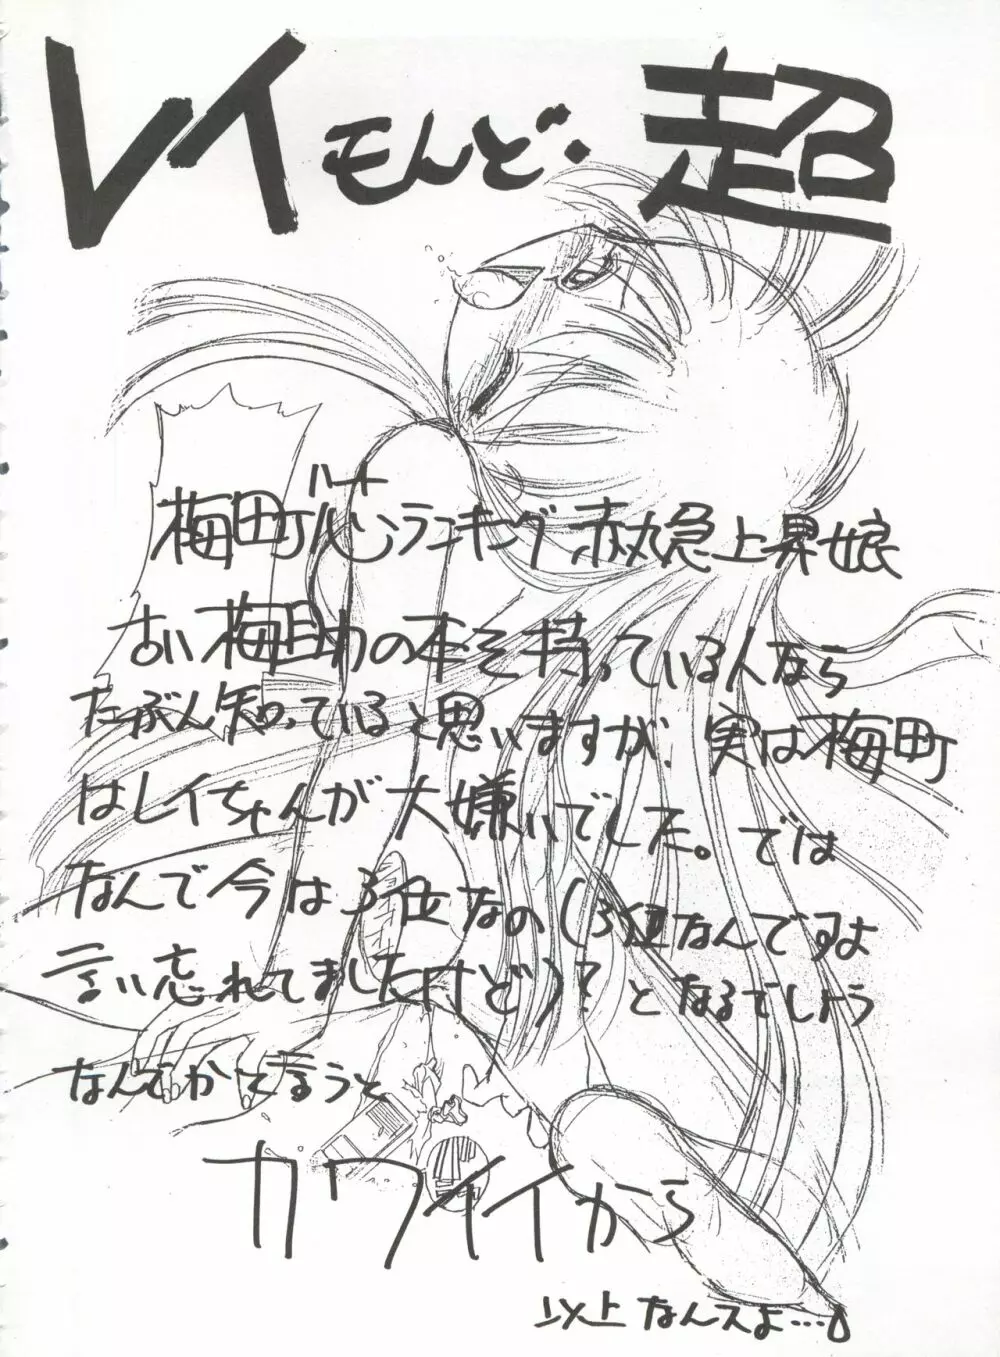 レイモンど・超
ハート
梅町心ランキング赤丸急上昇娘
古い梅助の本を持っている人なら
たぶん知っていると思いますが、実は梅町
はレイちゃんが大嫌いでした。では
なんで今は3位なの(3位なんですよ
言い忘れてましたけど)?となるでしょう
なんでかて言うと
カワイイから
以上なんスよ…。